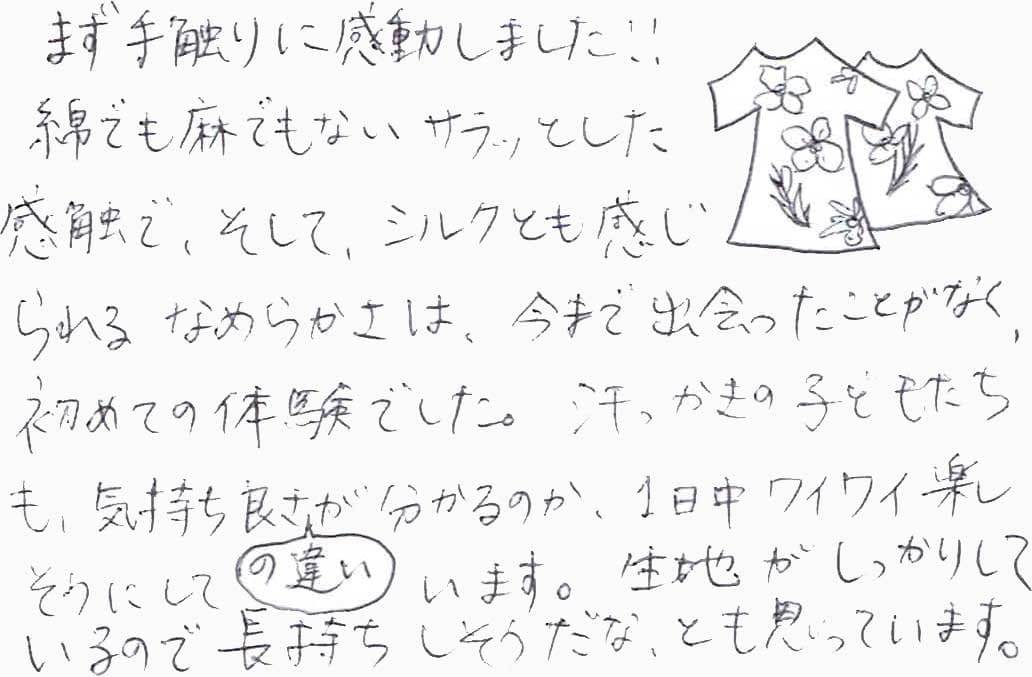 まず手触りに感動しました!!
綿でも麻でもないサラッとした
感触で、そして、シルクとも感じ
られるなめらかさは、今まで出会ったことがなく、
初めての体験でした。汗っかきの子どもたち
も、気持ち良さが分かるのか、1日中ワイワイ楽し
の違い
そうにしています。生地がしっかりして
いるので長持ちしそうだな、とも思っています。